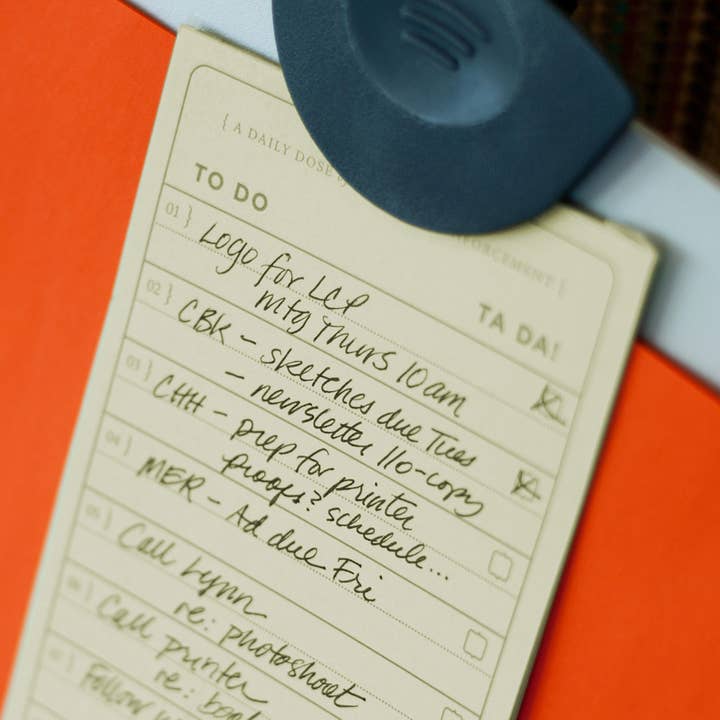 { A DAILY DOSE
TO DO
TA DA!
01 } Logo for LCP
mtg Thurs 10am
02 } CBK - sketches due Tues
- newsletter
03 } CHH - prep for printer
proofs? schedule...
04 } MER - Ad due Fri
05 } Call Lynn
re: photoshoot
06 } Call printer
re:
07 } Follow